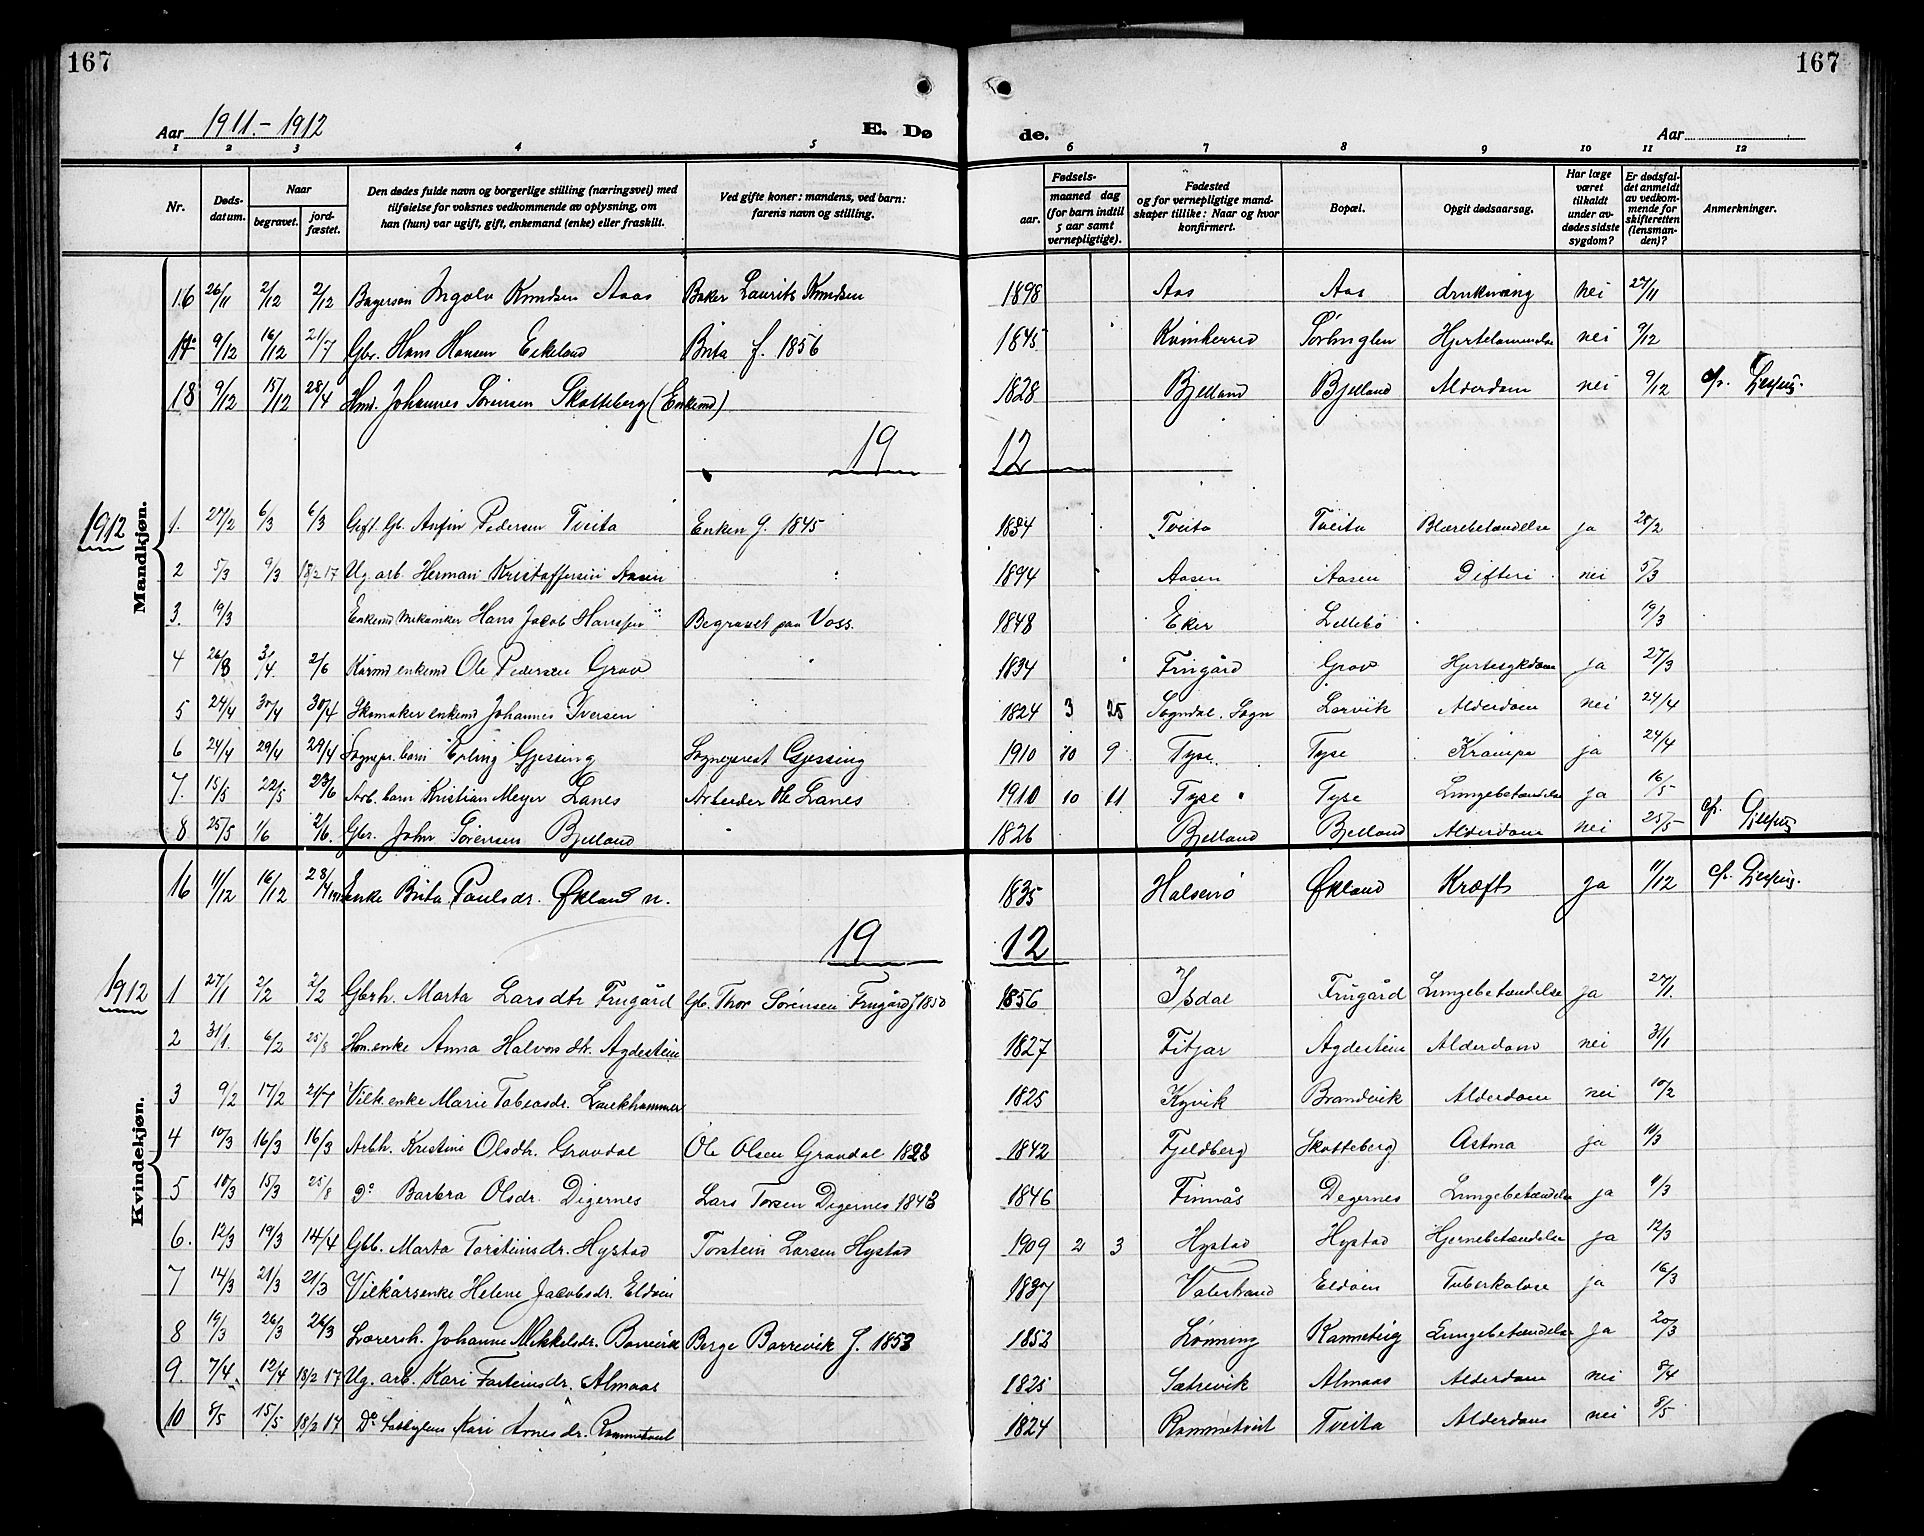 167
167
Aar 1911.-1912
E. Dø
de.
Aar
1 2 3 4 5 6 7 8 9 10 11 12
Nr.
Døds-
datum.
Naar
begravet.
jord-
fæstet.
Den dødes fulde navn og borgerlige stilling (næringsvei) med
tilføielse for voksnes vedkommende av oplysning, om
han (hun) var ugift, gift, enkemand (enke) eller fraskilt.
Ved gifte koner: mandens, ved barn:
farens navn og stilling.
Fødsels-
aar.
maaned dag
(for barn indtil
5 aar samt
vernepligtige).
Fødested
og for vernepligtige mand-
skaper tillike: Naar og hvor
konfirmert.
Bopæl.
Opgit dødsaarsag.
Har læge
været
tilkaldt
under av-
dødes sidste
sygdom?
Er dødsfal-
det anmeldt
av vedkom-
mende for
skifteretten
(lensman-
den)?
Anmerkninger.
Mandkjøn.
16 26/11 2/12 2/12 Ingolv Knudsen Aaas Baker Laurits Knudsen 1898 Aas Aas drukning nei 27/11
9/12 16/12 21/7 Gbr. Hans Hansen Eikeland Brita f. 1856 1845 Kvinherred nei 9/12
18 9/12 15/12 28/4 Johannes Sørensen Skatteberg (Enkemd) 1828 Bjelland Bjelland Alderdom nei 9/12
19 12
1912
1. 27/2 6/3 6/3 Gift. Gb. Anfin Pedersen Tveita Enken f. 1845 1834 Tveita Tveita Blærebetændelse ja 28/2
2 5/3 9/3 18/2 17 Ug. arb. Herman Kristoffersen Aasen 1894 Aasen Aasen Difteri nei 5/3
3. 19/3 Enkemd Mekaniker Hans Jacob Hansen Begravet paa Voss. 1848 Eker Lillebø 19/3
4 26/3 3/4 2/6 enkemd Ole Pedersen Grov 1834 Frugård Grov Hjertesygdom ja 27/3
5 24/4 30/4 30/4 Skomaker enkemd Johannes Iversen 1824 3 25 Sogndal. Sogn Larvik Alderdom nei 24/4
6 24/4 29/4 29/4 Sognepr. barn Erling Gjessing Sogneprest Gjessing 1910 10 9 Tyse Tyse Krampe ja 24/4
7. 15/5 22/5 23/6 Arb. barn Kristian Meyer Lanes Arbeider Ole Lanes 1910 10 11 Tyse Tyse Lungebetændelse ja 16/5
8 25/5 1/6 2/6. Gbr. John Sørensen Bjelland 1826 Bjelland Bjelland Alderdom nei 25/5
Kvindekjøn.
16 11/12 16/12 Enke Brita Paulsdr. Økland n. 1835 Halsenø Økland Kræft ja 11/12
19 12
1912
1 27/1 2/2 2/2 Gbrh. Marta Larsdtr Frugård Gb. Thor Sørensen Frugård f 1850 1856 Isdal Frugård Lungebetændelse ja 27/1.
2 31/1. 6/2 25/8 enke Anna Halvorsdtr. Agdestein 1827 Fitjar Agdestein Alderdom nei 31/1
3 9/2 17/2 21/7 Vilk. enke Marie Tobiasdr. Laukhammer 1825 Kyvik Brandvik Alderdom nei 10/2
4 10/3 16/3 16/3 Arbh. Kristine Olsdtr. Gravdal Ole Olsen Gravdal 1842 Fjeldberg Skatteberg Astma ja 11/3
5 10/3 15/3 25/8 Do Barbra Olsdr. Digernes Lars Digernes 1843 1846 Finnås Degernes Lungebetændelse ja 11/3
6. 12/3 19/3 14/4 Gbb. Marta Torsteinsdr. Hystad Torstein Larsen Hystad 1909 2 3 Hystad Hystad Hjernebetændelse ja 12/3
7 14/3 21/3 21/3 Vilkårsenke Helene Jacobsdr. Eldøen Valestrand Eldøen Tuberkolose ja 16/3
8 19/3 26/3 26/3 Lærersh. Johanne Mikkelsdr. Borrevik Berge Borrevik f. 1853 1852 Lønning Lungebetændelse ja 20/3
9. 7/4 12/4 18/2 17 Ug. arb. Kari Torsteinsdr. Almaas 1825 Sætrevik Almaas Alderdom nei 8/4
10 8/5 15/5 18/2 17 Do Kari Arnesdr. Rommetveit 1824 Rommetveit Tveita Alderdom nei 8/5